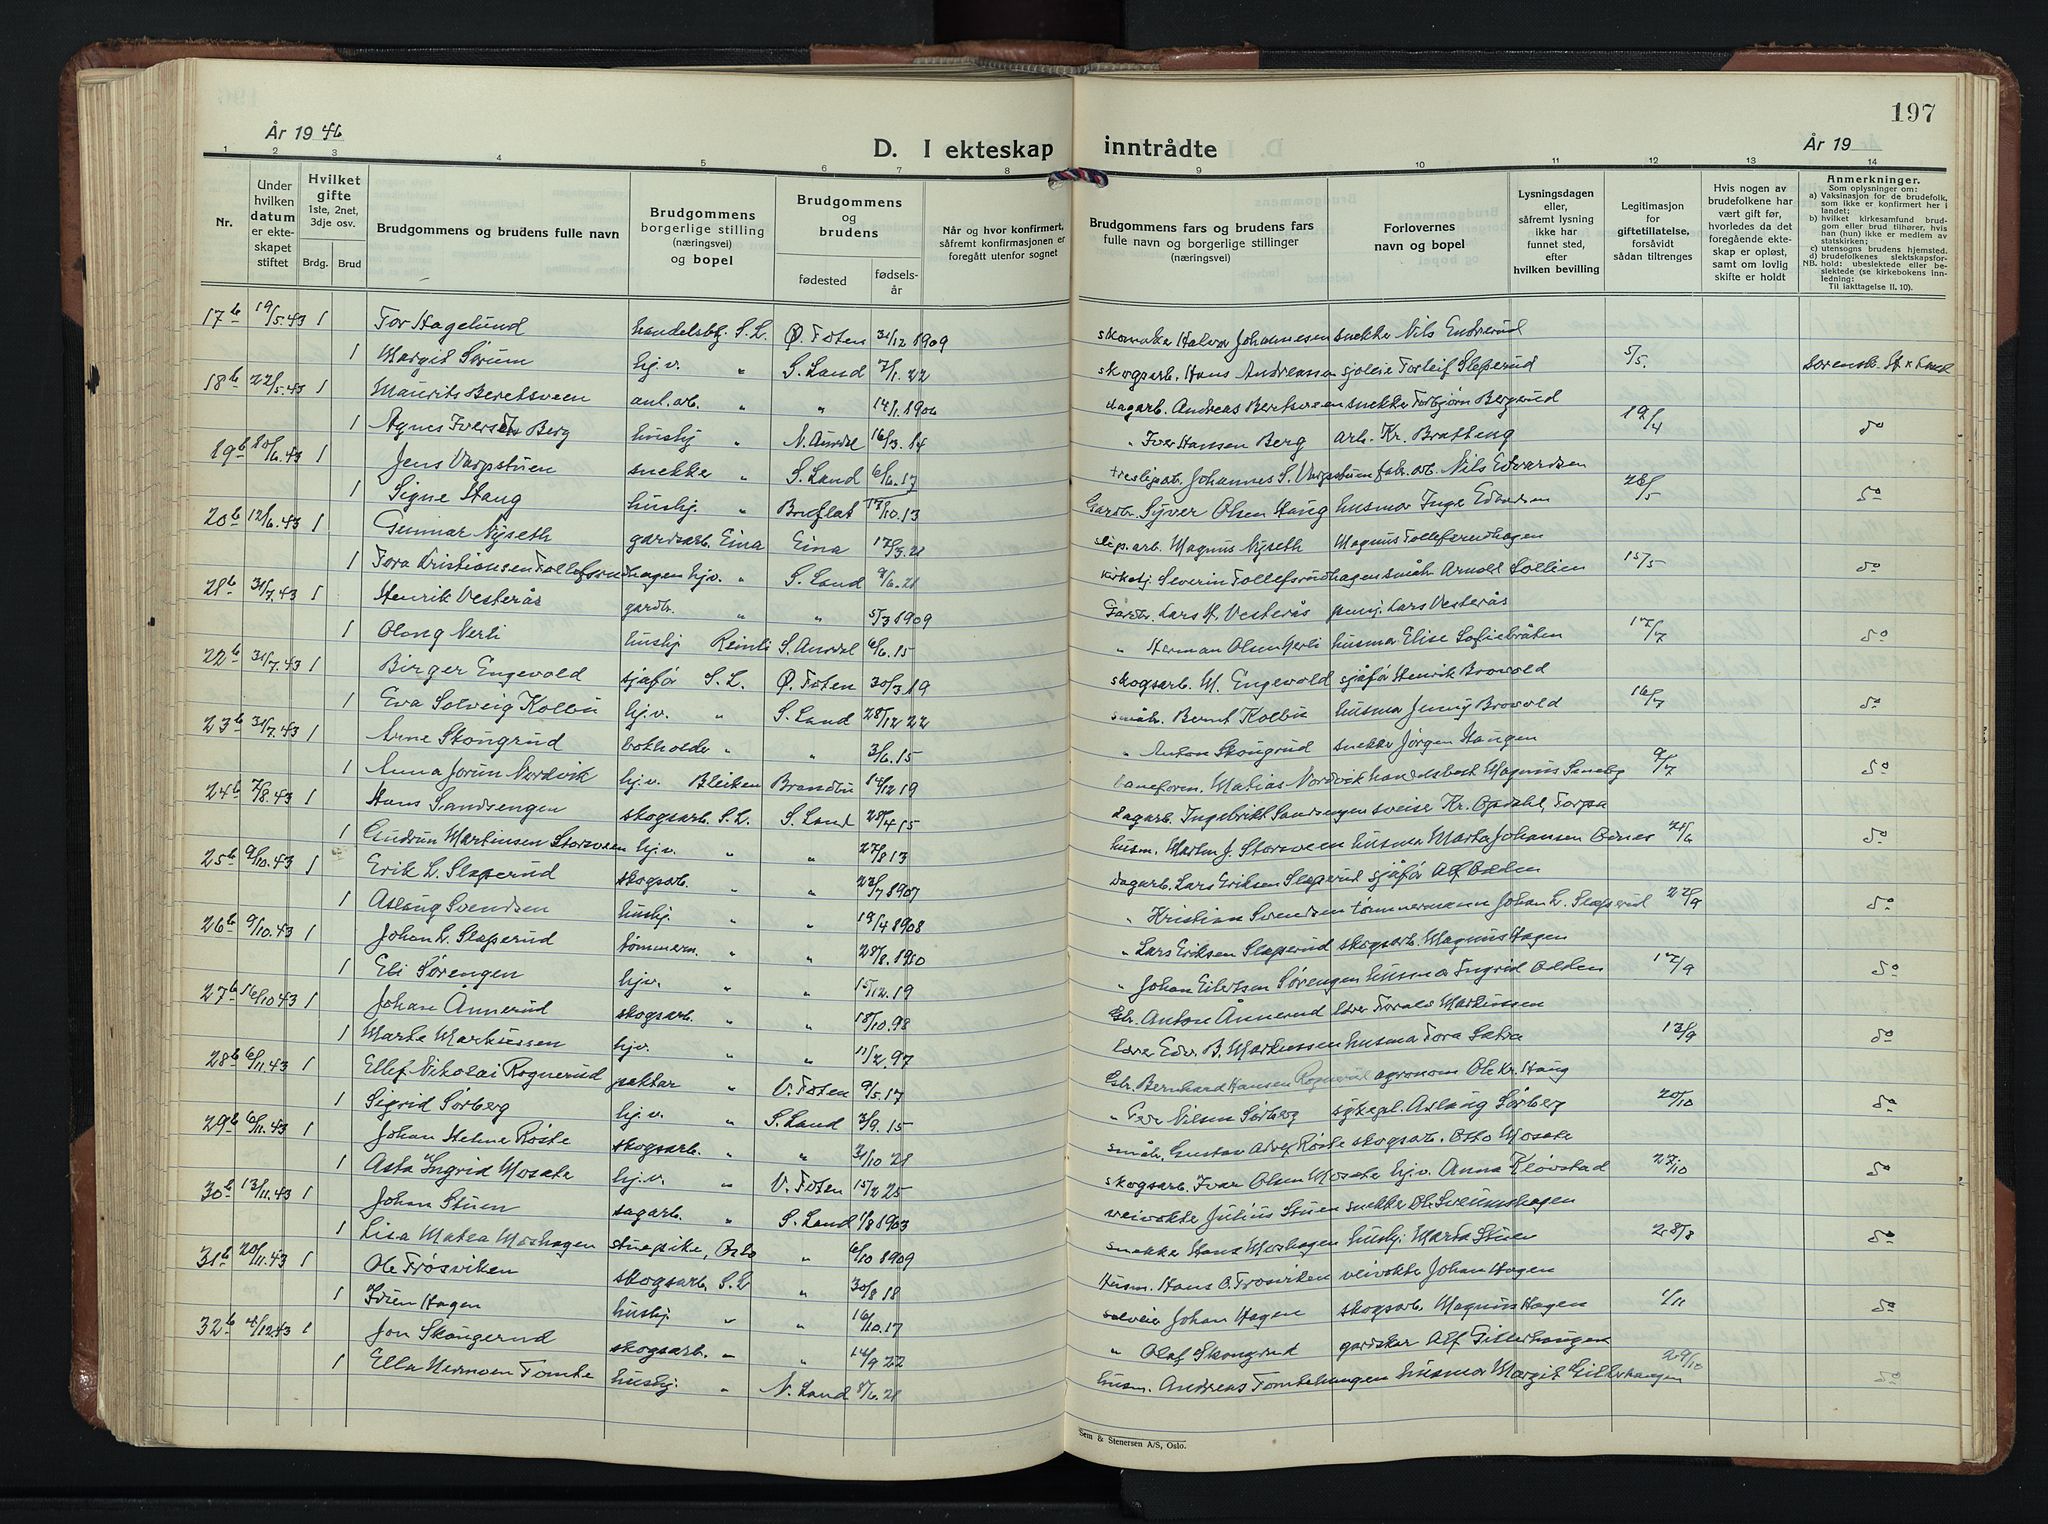 197
År 19 46
D. I ekteskap inntrådte
År 19
1 2 3 4 5 6 7 8 9 10 11 12 13 14
Nr.
Under hvilken datum er ekteskapet stiftet
Hvilket gifte 1ste, 2net, 3dje osv.
Brdg. Brud
Brudgommens og brudens fulle navn
Brudgommens borgerlige stilling (næringsvei) og bopel
Brudgommens og brudens
fødested
fødselsår
Når og hvor konfirmert, såfremt konfirmasjonen er foregått utenfor sognet
Brudgommens fars og brudens fars fulle navn og borgerlige stillinger (næringsvei)
Forlovernes navn og bopel
Lysningsdagen eller, såfremt lysning ikke har funnet sted, efter hvilken bevilling
Legitimation for giftetillatelse, forsåvidt sådan tiltrenges
Hvis nogen av brudefolkene har vært gift før, hvorledes da det foregående ekteskap er opløst, samt om lovlig skifte er holdt
Anmerkninger.
Som oplysninger om:
a) Vaksinasjon for de brudefolk, som ikke er konfirmert her i landet;
b) hvilket kirkesamfund brudgom eller brud tilhører, hvis han (hun) ikke er medlem av statskirken;
c) utensogns brudens hjemsted.
d) brudefolkenes slektskapsforhold: ubeslektede eller beslektede (se kirkebokens innledning:
NB.
Til iakttagelse II. 10).
17b 19/5.43 1 Tor Hagelund handelsbtj. S.L. Ø. Toten 31/12 1909 skomaker Halvor Johannesen snekker Nils Endrerud
1 Margit Sørum hj.v. " S. Land 7/1.22 skogsarb. Hans Andreassen Torleif Slaperud 5/5.
18b 22/5.43 1 Maurits Beretsveen anl.arb. " " 14/1.1906 dagarb. Andreas Bertsveen snekker Torbjørn Bergerud
1 Agnes Iversen Berg hushj " N. Aurdal 16/3.14 " Iver Hansen Berg arb. Kr. Bratteng 19/4 do
19b 10/6.43 1 Jens Varpstuen snekker " S. Land 6/6.17 Johannes S. Varpstuen fabr.arb. Nils Edvardsen
1 Signe Haug hushj. " Bruflat 13/10.13 Gardbr. Syver Olsen Haug husmor Inga Edvardsen 26/5 do
20b 12/6.43 1 Gunnar Nyseth gardsarb. Eina Eina 17/3.21 slip.arb. Magnus Nyseth Magnus Tollefsrudhagen
1 Tora Kristiansen Tollefsrudhagen hjv. " S. Land 9/6.21 kirketj Severin Tollefsrudhagen småbr Arnold Sollien 15/5 do
21b 31/7.43 1 Henrik Vesterås gardbr. " " 5/3 1909 Gardbr. Lars H. Vesterås pensj. Lars Vesterås
1 Olaug Nerli hushj Reinli S. Aurdal 6/6.15 " Herman Olsen Nerli husmor Elise Sofiebråten 17/7 do
22b 31/7.43 1 Birger Engevold sjåfør S.L. Ø. Toten 30/3.19 skogsarb. M. Engevold sjåfør Henrik Browold
1 Eva Solveig Kolbu hj.v. " S. Land 28/12 22 småbr. Bernt Kolbu husmor Jenny Browold 16/7 do
23b 31/7.43 1 Arne Skøngrud bokholder " " 3/6.15 " Anton Skøngrud snekker Jørgen Haugen
1 Anna Jorun Nordvik hj.v. Bleiken Brandbu 14/12 19 baneform. Matias Nordvik handelsbest Magnus Sandby 9/7 do
24b 7/8.43 1 Hans Sandsengen skogsarb. S.L. S. Land 28/4 15 dagarb. Ingebrikt Sandsengen sveiser Kr. Opdahl, Torpa
1 Gudrun Martinsen Storsveen hj.v. " " 27/8 13 husm. Martin J. Storsveen husmor Marta Johansen Odnes 21/6 do
25b 9/10.43 1 Erik L. Slaperud skogsarb. " " 23/7 1907 dagarb. Lars Eriksen Slaperud sjåfør Alf Odden
1 Aslaug Svendsen hushj. " " 19/4 1908 " Kristian Svendsen tømmermann Johan L. Slaperud 22/9 do
26b 9/10.43 1 Johan L. Slaperud tømmerm. " " 28/8.1910 " Lars Eriksen Slaperud skogsarb. Magnus Hagen
1 Eli Sørengen hjv. " " 15/12.19 " Johan Eilertsen Sørengen husmor Ingrid Odden 17/9 do
27b 16/10 43 1 Johan Ånnerud skogsarb. " " 18/10.98 Gbr. Anton Ånnerud lærer Torvald Markussen
1 Marte Markussen hjv. " " 11/2.97 lærer Edv. B. Markussen husmor Tora Sætra 13/9 do
28b 6/11.43 1 Ellef Nikolai Rognerud paktar " V. Toten 9/5.17 Gbr. Bernhard Hansen Rognerud agronom Ole Kr. Haug
1 Sigrid Sørberg hj.v. " S. Land 3/9.15 " Peder Nilsen Sørberg sykepl. Aslaug Sørberg 20/10 do
29b 6/11.43 1 Johan Helmer Røste skogsarb. " " 31/10 21 småbr. Gustav Adolf Røste skogsarb. Otto Mosete
1 Asta Ingrid Mosete hj.v. " V. Toten 15/2 25 skogsarb. Ivar Olsen Mosete hjv. Anna Kløvstad 27/10 do
30b 13/11.43 1 Johan Stuen sagarb. " S. Land 1/8 1903 veivokter Julius Stuen snekker Ole Sveumshagen
1 Lisa Matea Moshagen stuepike, Oslo " 6/10 1909 snekker Hans Moshagen hushj. Marta Stuen 28/8 do
31b 20/11.43 1 Ole Trøsviken skogsarb. S.L. " 30/8 18 Husm. Hans O. Trøsviken veivokter Johan Hagen
1 Idun Hagen hushj. " " 16/10.17 Johan Hagen skogsarb. Magnus Hagen 1/11 do
32b 4/12 43 1 Jon Skøngerud skogsarb. " " 14/9 22 " Olaf Skøngrud gardskar Alf Gillerhaugen
1 Ella Nermoen Tomte hushj. " N. Land 8/6.21 husm. Andreas Tomtehaugen husmor Margit Gillerhaugen 29/10 do
Sem & Stenersen A/S, Oslo.